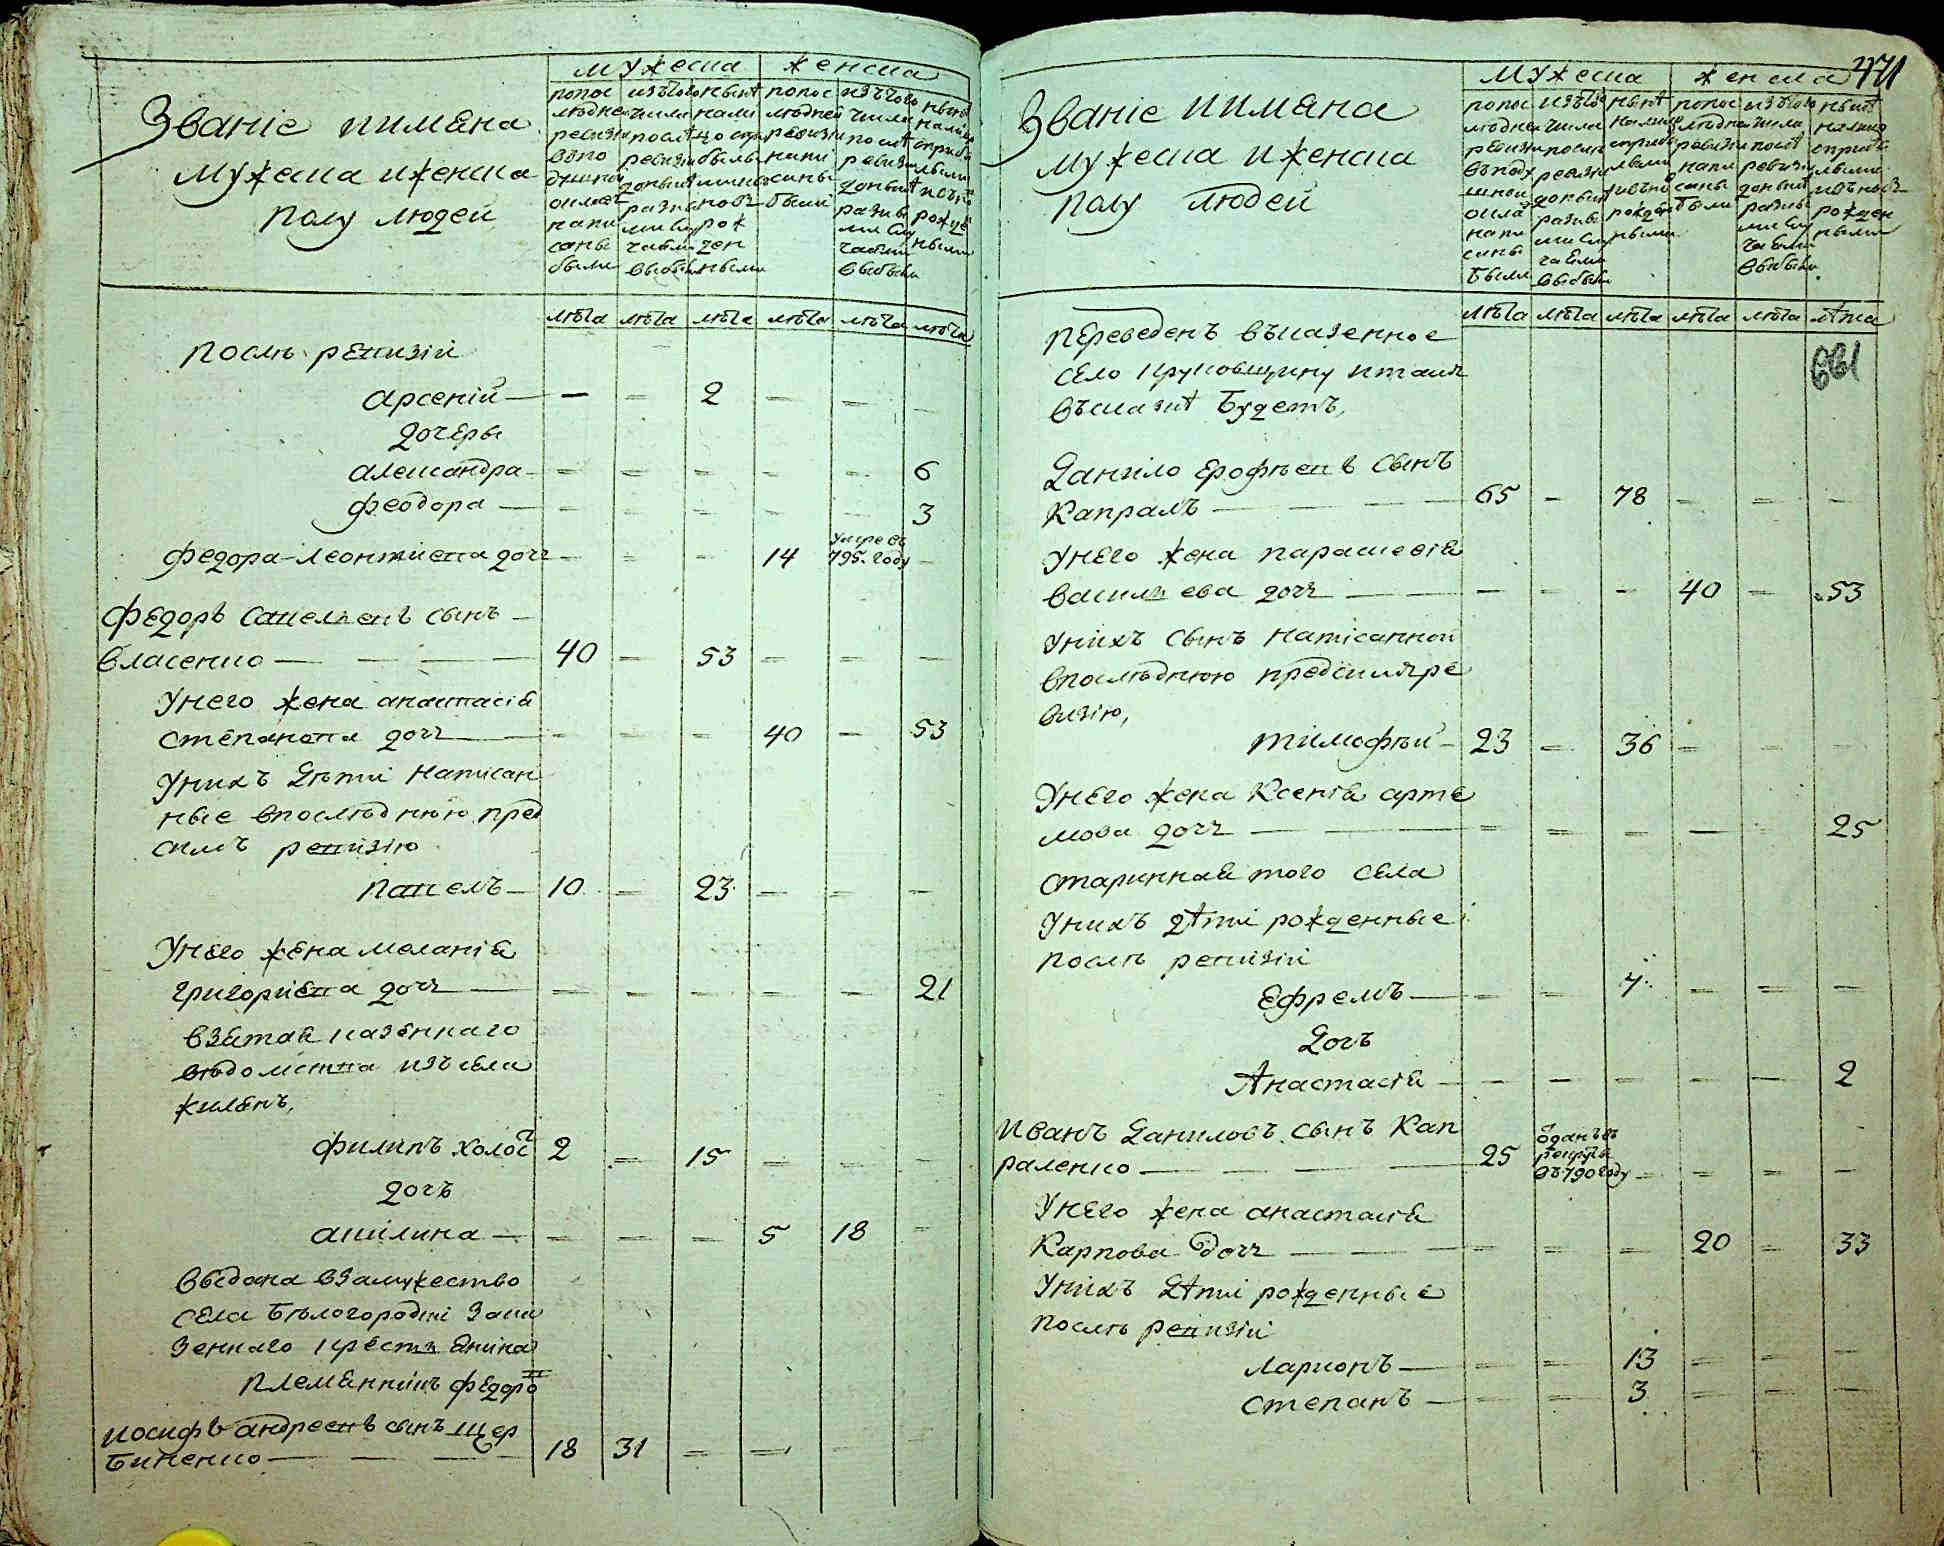 Званіе иимяна
мужеска иженска
полу людей
мужеска
женска
попос
леднеи
ревизи
вопо
душной
окладъ
напи
саны
были
изътого
числа
послѣ
ревизи
донынѣ
разны
ми слу
чаями
выбыло
нынѣ
попос
леднеи
ревизи
напи
саны
были
изътого
числа
послѣ
ревизи
донынѣ
разны
ми слу
чаями
выбыли
лѣта лѣта лѣта лѣта лѣта лѣта
послѣ ревизіи
Арсеній — — 2 — — —
дочеры
Александра — — — — — 6
Феодора — — — — — 3
Федора Леонтиева дочь — — — 14 умре въ 795. году —
Федоръ Савельевъ сынъ
Власенко — 40 — 53 — — —
Унего жена анастасія
степанова дочь — — — 40 — 53
Унихъ дѣти написан
ные впослѣднюю пред
симъ ревизію
Павелъ — 10 — 23 — — —
Унего жена меланія
григориева дочь — — — — — 21
взятая казеннаго
вѣдомства изъ села
жилянъ,
филипъ холос 2 — 15 — — —
дочь
акилина — — — 5 18 —
выдана взамужество
села бѣлогородки зака
зеннаго крестьянина
племянникъ федоро
иосифъ андреевъ сынъ щер
биненко — 18 31 — — —
471
Званіе иимяна
мужеска иженска
полу людей
мужеска
женска
попос
ледней
ревизи
въподу
шной
окла
напи
саны
были
изътого
числа
послѣ
ревизи
донынѣ
разны
ми слу
чаями
выбыли
нынѣ
попос
ледне
ревизи
напи
саны
были
изътого
числа
послѣ
ревизи
донынѣ
разны
ми слу
чаями
выбыли
нынѣ
налицо
лѣта лѣта лѣта лѣта лѣта лѣта
661
переведенъ въказенное
село круковщину итамъ
въсказкѣ будетъ,
Данило Ерофѣевъ сынъ
Капралъ — 65 — 78 — — —
Унего жена параскевія
васильева дочь — — — 40 — 53
Унихъ сынъ написанной
впослѣднюю предсимъ ре
визію,
тимофѣй — 23 — 36 — — —
Унего жена Ксенія арте
мова дочь — — — — — 25
старинная того села
Унихъ дѣти рожденные
послѣ ревизіи
Ефремъ — — 7 — — —
Дочь
Анастасія — — — — — 2
Иванъ Даниловъ сынъ Кап
раленко — 25 отданъ въ рекруты въ 790 году — — — —
Унего жена анастасія
Карпова Дочь — — — 20 — 33
Унихъ дѣти рожденные
послѣ ревизіи
Ларионъ — — 13 — — —
Степанъ — — 3 — — —